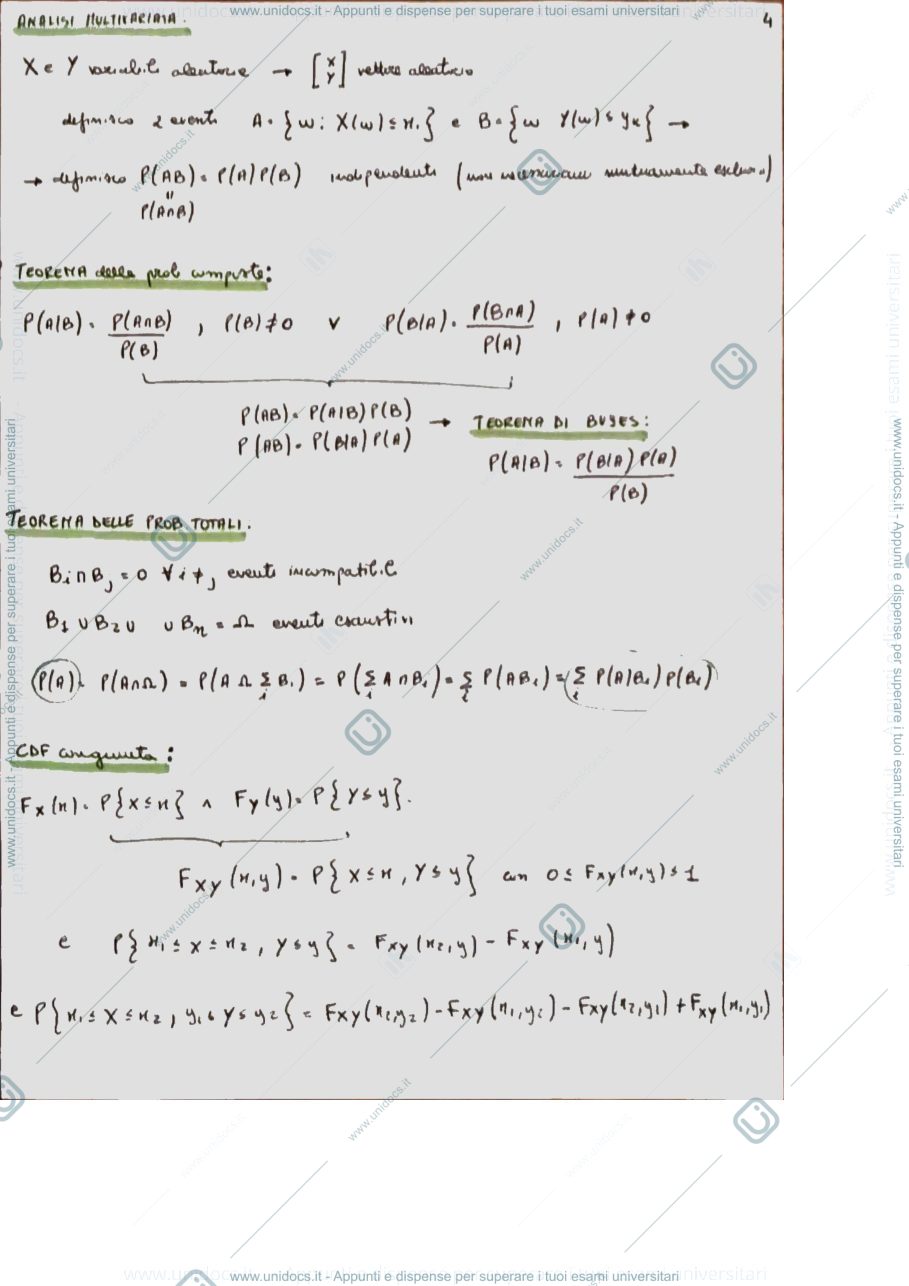 www.unidocs.it - Appunti e dispense per superare i tuoi esami universitari
4
ANALISI MULTIVARIATA.
X e Y variabili aleatorie → [X Y] vettore aleatorio
definisco 2 eventi A = {ω: X(ω) ≤ x₁} e B = {ω Y(ω) ≤ yₖ} →
→ definisco P(AB) = P(A)P(B) indipendenti (non necessariam mutuamente esclusivi)
=
P(A∩B)
TEOREMA della prob composta:
P(A|B) = P(A∩B)/P(B) , P(B) ≠ 0 ∨ P(B|A) = P(B∩A)/P(A) , P(A) ≠ 0
P(AB) = P(A|B)P(B)
P(AB) = P(B|A)P(A) → TEOREMA DI BUYES:
P(A|B) = P(B|A)P(A)/P(B)
TEOREMA DELLE PROB TOTALI.
Bi∩Bj = 0 ∀ i ≠ j eventi incompatibili
B₁ ∪ B₂ ∪ ∪ Bn = Ω eventi esaustivi
P(A) = P(A∩Ω) = P(A ∩ Σi Bi) = P(Σi A∩Bi) = Σi P(ABi) = Σi P(A|Bi)P(Bi)
CDF congiunta:
Fx(x) = P{X ≤ x} ∧ Fy(y) = P{Y ≤ y}.
Fxy(x,y) = P{X ≤ x, Y ≤ y} con 0 ≤ Fxy(x,y) ≤ 1
e P{x₁ ≤ X ≤ x₂, Y ≤ y} = Fxy(x₂,y) - Fxy(x₁,y)
e P{x₁ ≤ X ≤ x₂, y₁ ≤ Y ≤ y₂} = Fxy(x₂,y₂) - Fxy(x₁,y₂) - Fxy(x₂,y₁) + Fxy(x₁,y₁)
www.unidocs.it - Appunti e dispense per superare i tuoi esami universitari